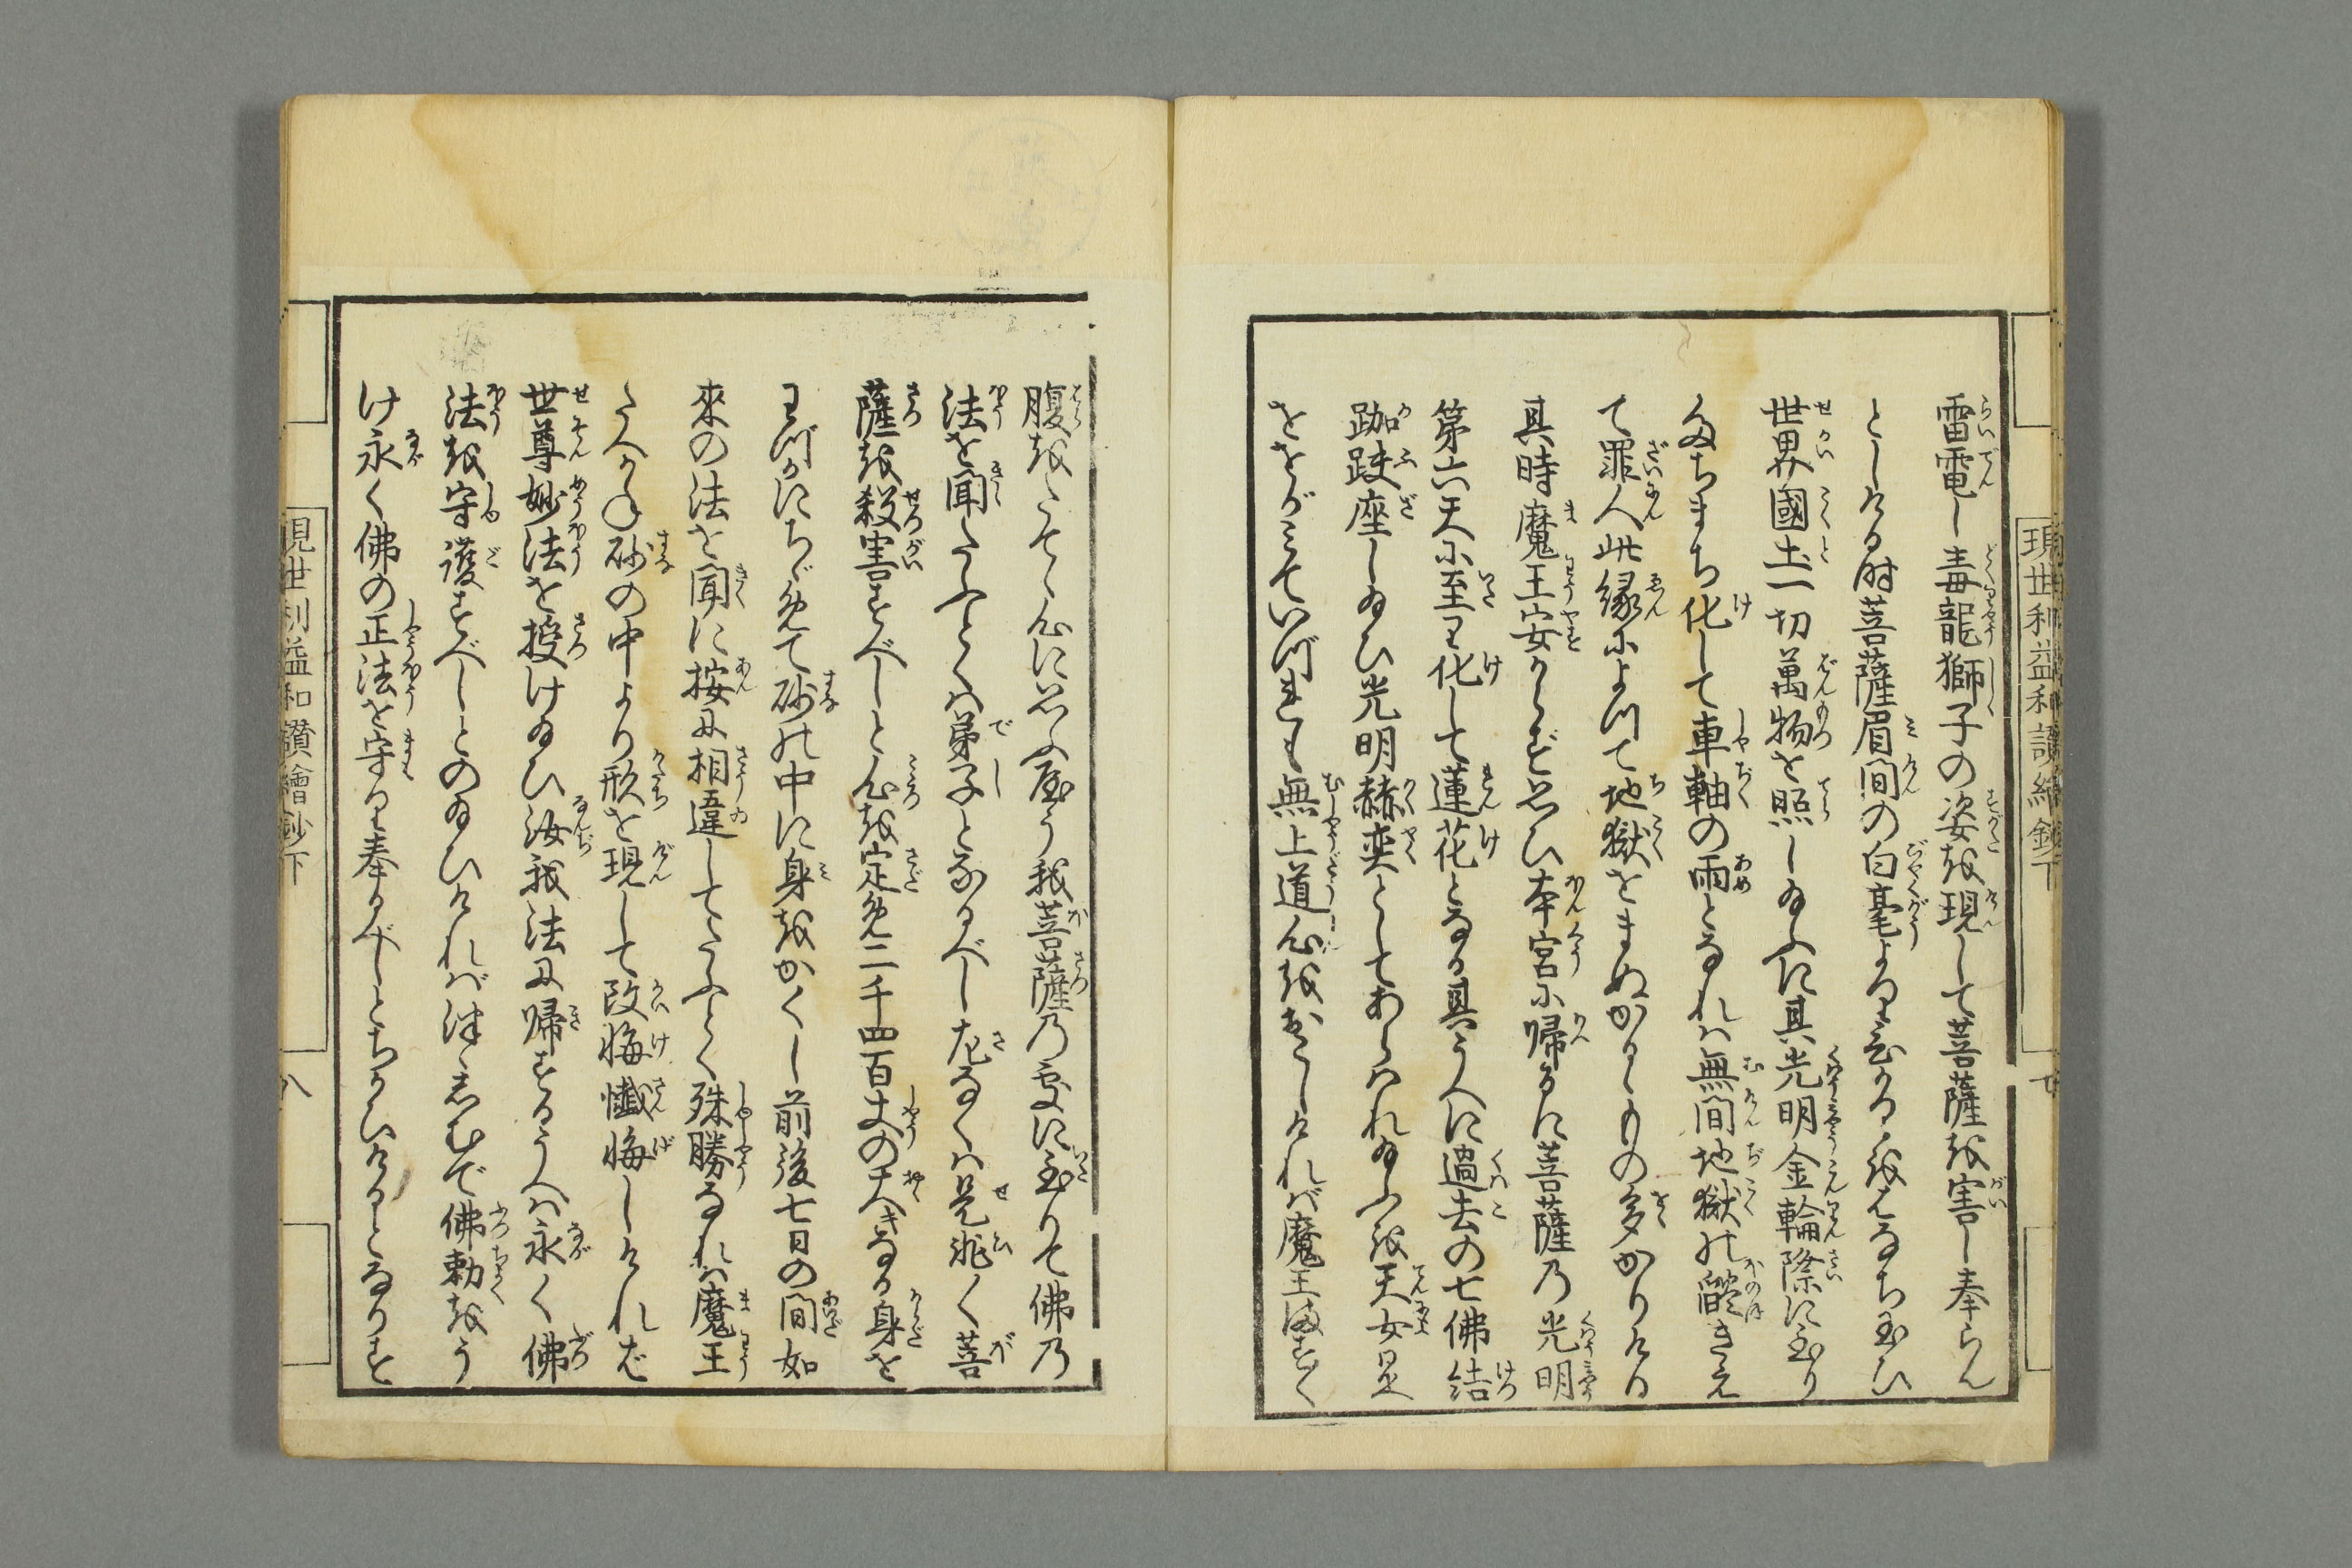 雷電し毒龍獅子の姿を現して菩薩を害し奉らん
としける時菩薩眉間の白毫より光をはなち玉ひ
世界國土一切萬物を照し給ふに其光明金輪際に至り
たちまち化して車軸の雨となれは無間地獄の熖きえ
て罪人此縁によつて地獄をまぬかるゝもの多かりける
其時魔王安からず思ひ本宮に帰るに菩薩乃光明
第六天に至り化して蓮花となる其うへに過去の七佛結
跏趺座し給ひ光明赫奕としてあらはれ給ふを天女是
をおがみていづれも無上道心をおこしければ魔王ますく
腹をたてゝ心に思ふ屋う我菩薩乃処に至りて佛乃
法を聞たふとくは弟子となるべし左なくは是非く菩
薩を殺害すべしと心を定め二千四百丈の大きなる身を
わづかにちゞめて砂の中に身をかくし前後七日の間如
來の法を聞に按に相違してたふとく殊勝なれは魔王
たへかね砂の中より形を現して改悔懺悔しけれバ
世尊妙法を授け給ひ汝我法に帰するうへは永く佛
法を守護すべしとの給ひければ謹んで佛勅をう
け永く佛の正法を守り奉るべしとちかひけるとなりさ
現世利益和讃繪鈔下
八